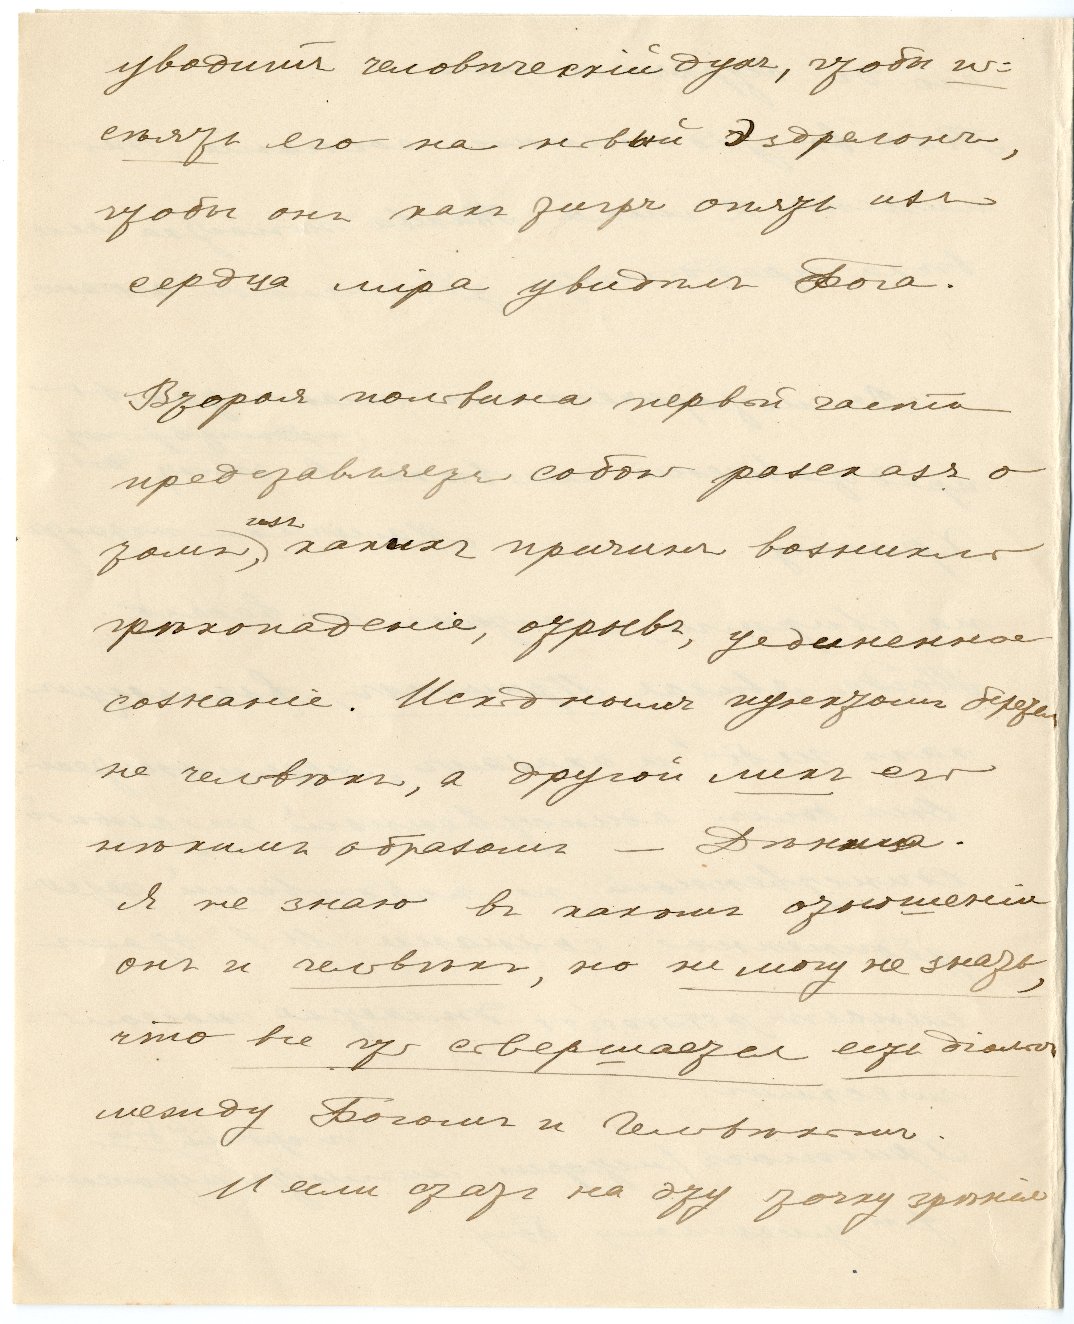 уводитъ человѣческій духъ, чтобы ис=
пять его на новый Эздрелонъ,
чтобы онъ какъ тигръ опять изъ
сердца міра увидѣлъ Бога.
Вторая половина первой части
представляетъ собою разсказъ о
томъ, изъ какихъ причинъ возникло
грѣхопаденіе, отрывъ, уединенное
сознаніе. Исходнымъ пунктомъ берется
не человѣкъ, а другой ликъ его
нѣкимъ образомъ —
Я не знаю въ какомъ отношеніи
онъ и человѣкъ, но не могу не знать,
что все что совершается есть діалогъ
между Богомъ и Человѣкомъ.
И если стать на эту точку зрѣнія